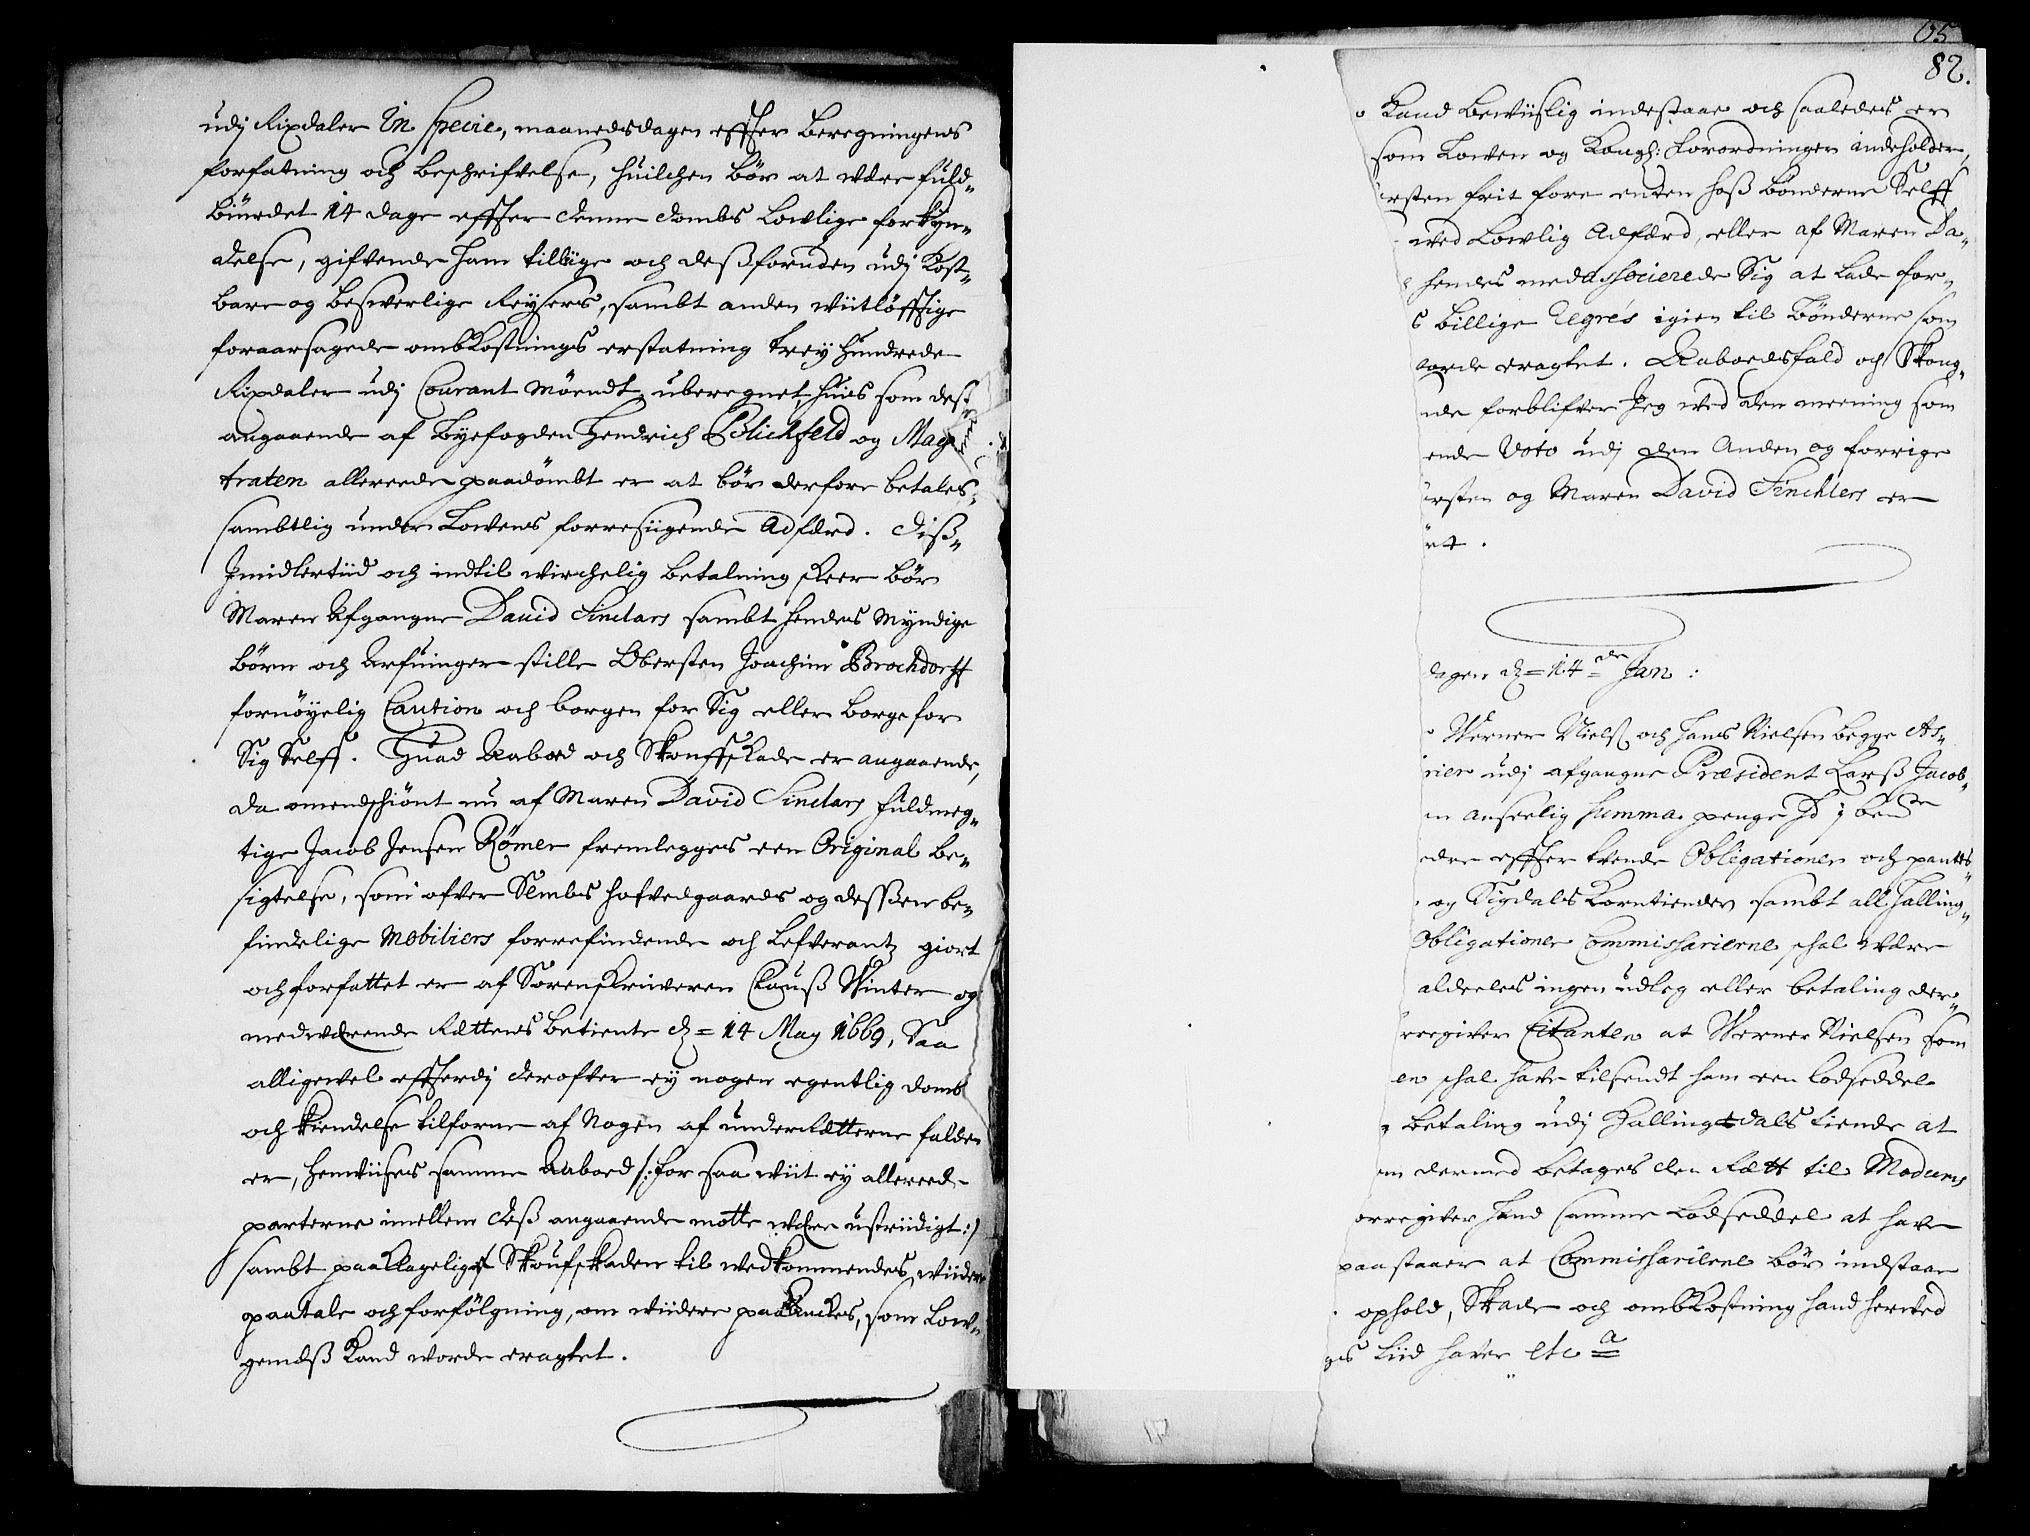 udj Rixdaler In Specie, maanedsdagen effter Beregningens
forfatning och beschrifvelse, huilchen bør at være fuld„
Biurdet 14 dage effter denne dombs Lovlige forkyn„
delse, gifvende ham tillige och desforuden udj Kost„
bare og beswerlige Reysers, sambt anden wiitløfftige
foraarsagede ombkostnings erstatning trey hundrede
Rixdaler udj Courant Møendt, uberegnet, huis som dest
angaaende af Byefogden Hendrich Blichfeld og Mag
traten allereede paadømbt er at bør derfore betales,
sambtlig under Lowens forresiigende Adfærd. Diß„
Imidlertiid och indtil virchelig betalning skeer bør
Maren Afgangne David Sinclars sambt hendes Myndige
Børn och Arfuinger stille Obersten Joachim Brochdorff
fornøyelig Caution och borgen for Sig eller borge for
Sig Selff. Huad Aaboed och Skoufskade er angaaende,
da omendschiønt nu af Maren David Sinclars fuldmeg„
tige Jacob Jensen Rømer fremlegges een Original be„
sigtelse, som ofver Sembs hofvedgaards og dessen be„
findelige Mobiliers forrefindende och Lefverantz giort
och forfattet er af Sorenskriveren Clauß Winter og
medværende Rettens betiente d = 14 May 1669, Saa
alligevel effterdj derofver ey nogen egentlig domb
och kiendelse tilforne af Nogen af underRetterne falden
er, henviises samme Aaboed /: for saa wiit ey allereede
parterne imellem deß angaaende motte være ustriidigt :/
sambt paaklagelige Skoufskaden til wedkommendes wiidere
paatale och forfølgning, om wiidere paaanckes, som Low„
gemæß kand worde eragtet.
82.
Kand beviislig indestaae och saaledes er
som Lowen og Kongl: Forordninger indeholder,
rsten frit fore enten hoß bønderne Selff
ved Lowlig Adfærd, eller af Maren Da„
hendes medassocierede Sig at lade for„
s billige Regrés igien til Bønderne som
vorde eragtet. Aaboedsfald och Skoug„
nde forblifver Jeg ved den meening som
ende Voto udj den Anden og forrige
ersten og Maren David Sinclers er
ørt.
dagen d = 14 de Jan:
Werner Nielß och Hans Nielsen begge As„
rier udj afgangne Præsident Larß Jacob„
en anseelig Summa penge
edre effter trende Obligationer och pantts„
og Sigdals Korntiender sambt all Halling„
Obligationer Commissarierne schal være
aldeeles ingen udleg eller betaling der„
rregiver Citanten at Werner Nielsen som
en schal have tilsendt ham een Lodseddel
betaling udj Hallingdals tiende at
en dermed betages den Rett til Modums
orregiver hand samme Lodseddel at have
paastaaer at Commissarierne bør indstaae
ophold, Skade och ombkostning hand herved
ges liid haver etc a